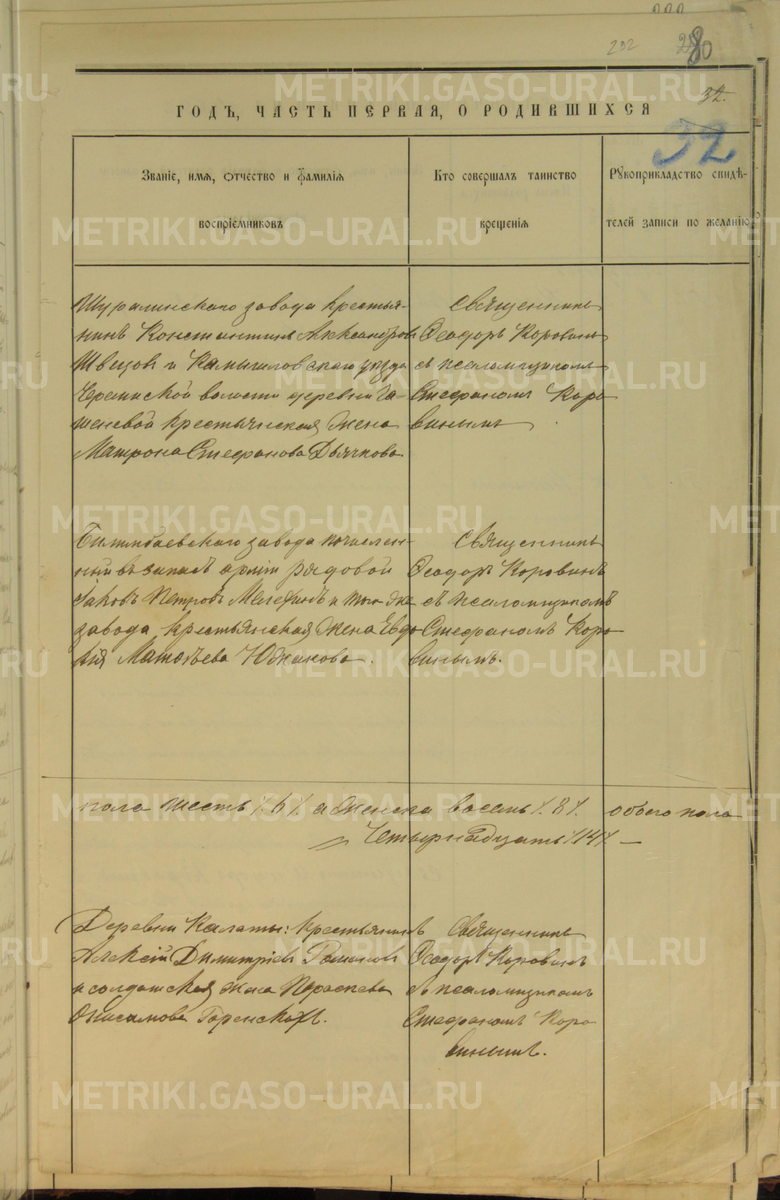 232 80
32.
ГОДЪ, ЧАСТЬ ПЕРВАЯ, О РОДИВШИХСЯ
32
Званіе, имя, отчество и фамилія
воспріемниковъ
Кто совершалъ таинство
крещенія
Рукоприкладство свидѣ-
телей записи по желанію
Шуралинскаго завода крестья-
нинъ Константинъ Александровъ
Швецов и Камышловскаго уѣзда
волости деревни
крестьянская жена
Матрона Стефанова Дьячкова
Священникъ
Ѳеодоръ Коровинъ
съ псаломщикомъ
Стефаномъ Коро
винымъ
Билимбаевскаго завода
въ запасъ арміи рядовой
Іаковъ Петровъ и того же
завода, крестьянская жена Евдо
кія Матвѣева Южакова.
Священникъ
Ѳеодоръ Коровинъ
съ псаломщикомъ
Стефаномъ Коро
винымъ.
пола шесть /.6/. а женска восемь /.8/. обоего пола
Четырнадцать /14/.
Деревни Калаты: крестьянинъ
Алексій Димитріев
и солдатская жена Параскева
Онисимова
Священникъ
Ѳеодоръ Коровинъ
съ псаломщикомъ
Стефаномъ Коро
винымъ.
METRIKI.GASO-URAL.RU